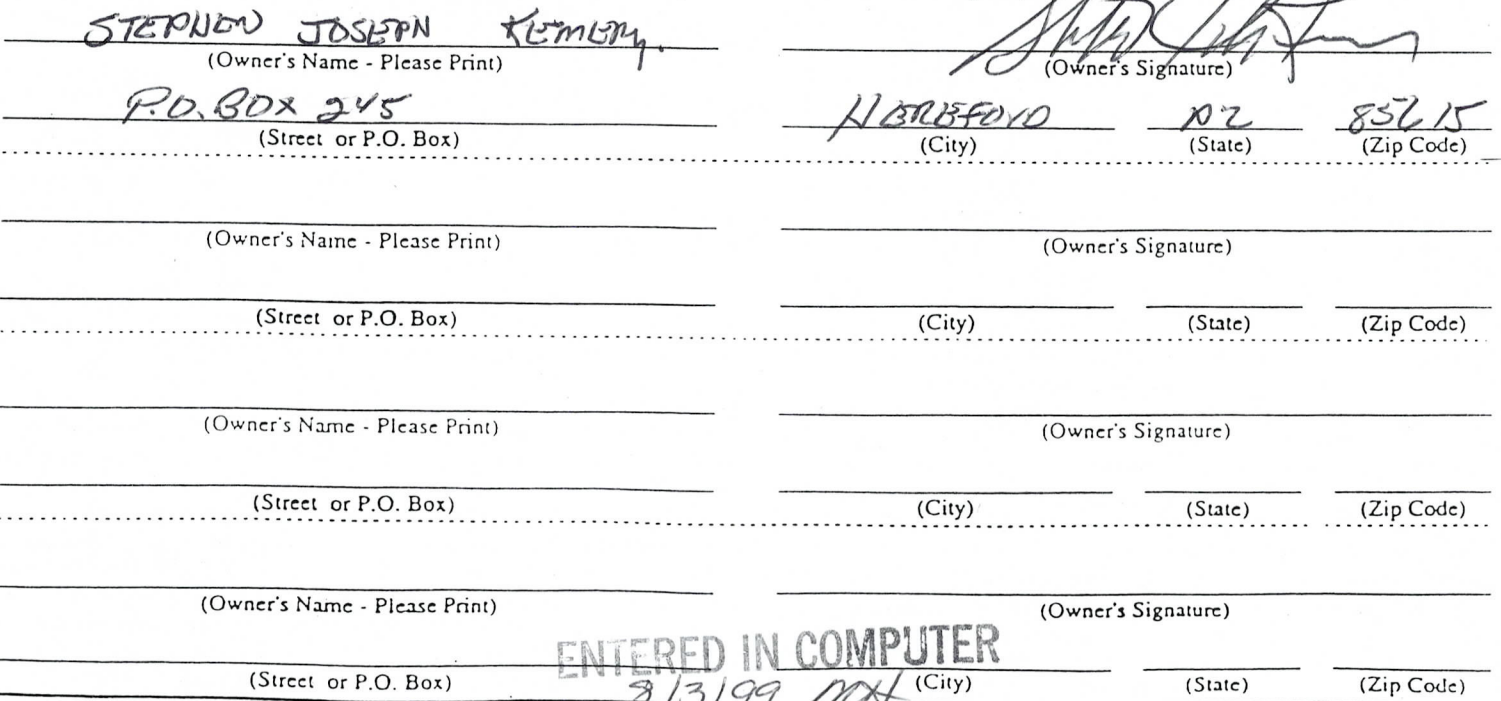 STEPHEN JOSEPH KEMERY.
(Owner's Name - Please Print) (Owner's Signature)
P.O. BOX 245 HEREFORD AZ 85615
(Street or P.O. Box) (City) (State) (Zip Code)
(Owner's Name - Please Print) (Owner's Signature)
(Street or P.O. Box) (City) (State) (Zip Code)
(Owner's Name - Please Print) (Owner's Signature)
(Street or P.O. Box) (City) (State) (Zip Code)
(Owner's Name - Please Print) (Owner's Signature)
ENTERED IN COMPUTER
(Street or P.O. Box) 8/3/99 MH (City) (State) (Zip Code)